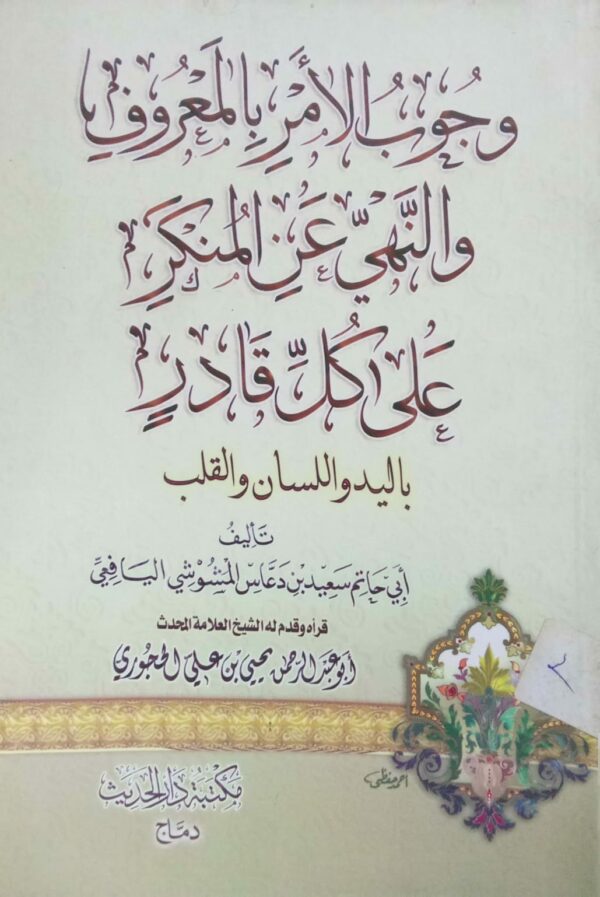 وُجُوبُ الأَمْرِ بِالمَعْرُوفِ
والنَّهْيِّ عَنِ المُنكَرِ
عَلَى كُلِّ قَادِرٍ
باليد واللسان والقلب
تأليفُ
أبي حاتم سعيد بن دعَّاس المشوشي اليافعيِّ
قرأه وقدم له الشيخ العلامة المحدث
أبو عبد الرحمن يحيى بن علي الحجوري
٣
مكتبة دار الحديث
دماج